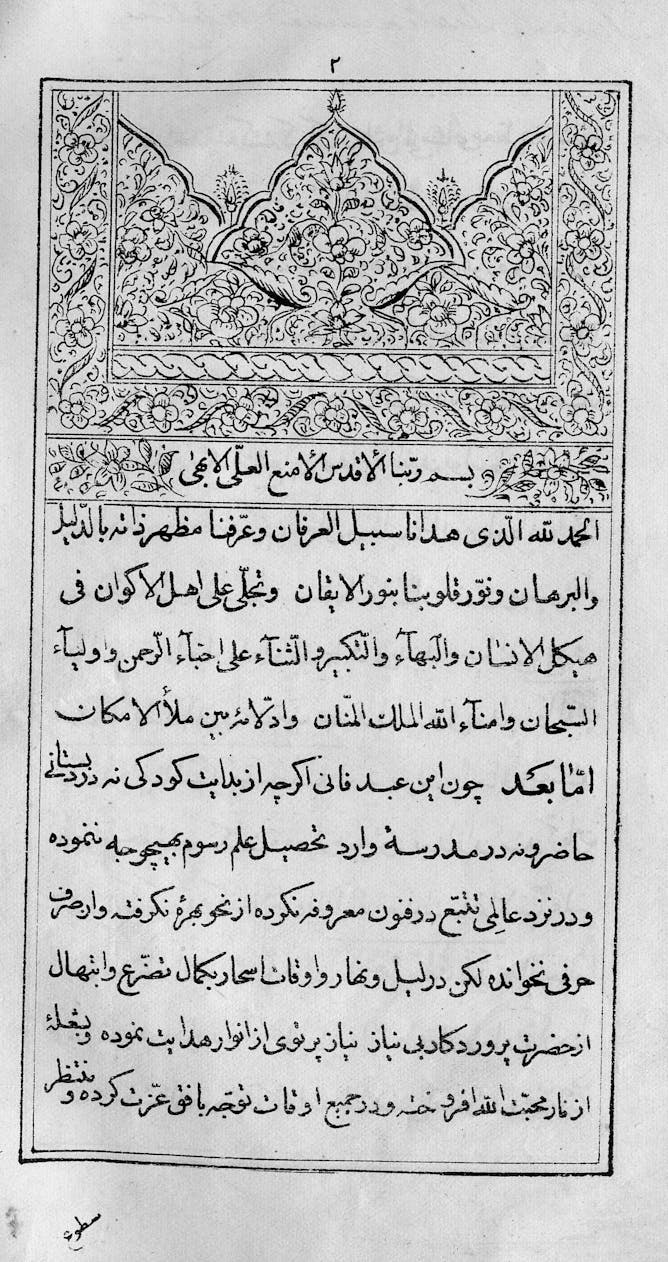 ٢
بسم ربّنا الأقدس الأمنع العلّی الابهیٰ
الحمد لله الّذی هدانا سبیل العرفان وعرّفنا مظهر ذاته بالدّلیل
والبرهان ونوّر قلوبنا بنور الایقان وتجلّی علی اهل الاکوان فی
هیکل الانسان والبهآء والتّکبیر والثّنآء علی احبّآء الرّحمن واولیآء
السّبحان وامنآء الله الملک المنّان وادلّائه بین ملأ الامکان
امّا بعد چون این عبد فانی اکرچه از بدایت کودکی نه در دبستانی
حاضر ونه در مدرسهٔ وارد تحصیل علم رسوم بهیچوجه ننموده
ودر نزد عالمی تتبّع در فنون معروفه نکرده از نحو بهرهٔ نکرفته واز صرف
حرفی نخوانده لکن در لیل ونهار واوقات اسحار بکمال تضرّع وابتهال
از حضرت پروردکار بی نیاز نیاز پرتوی از انوار هدایت نموده وبشعلهٔ
از نار محبّت الله افروخته ودر جمیع اوقات توجّه بافق عزّت کرده ومنتظر
سطوع